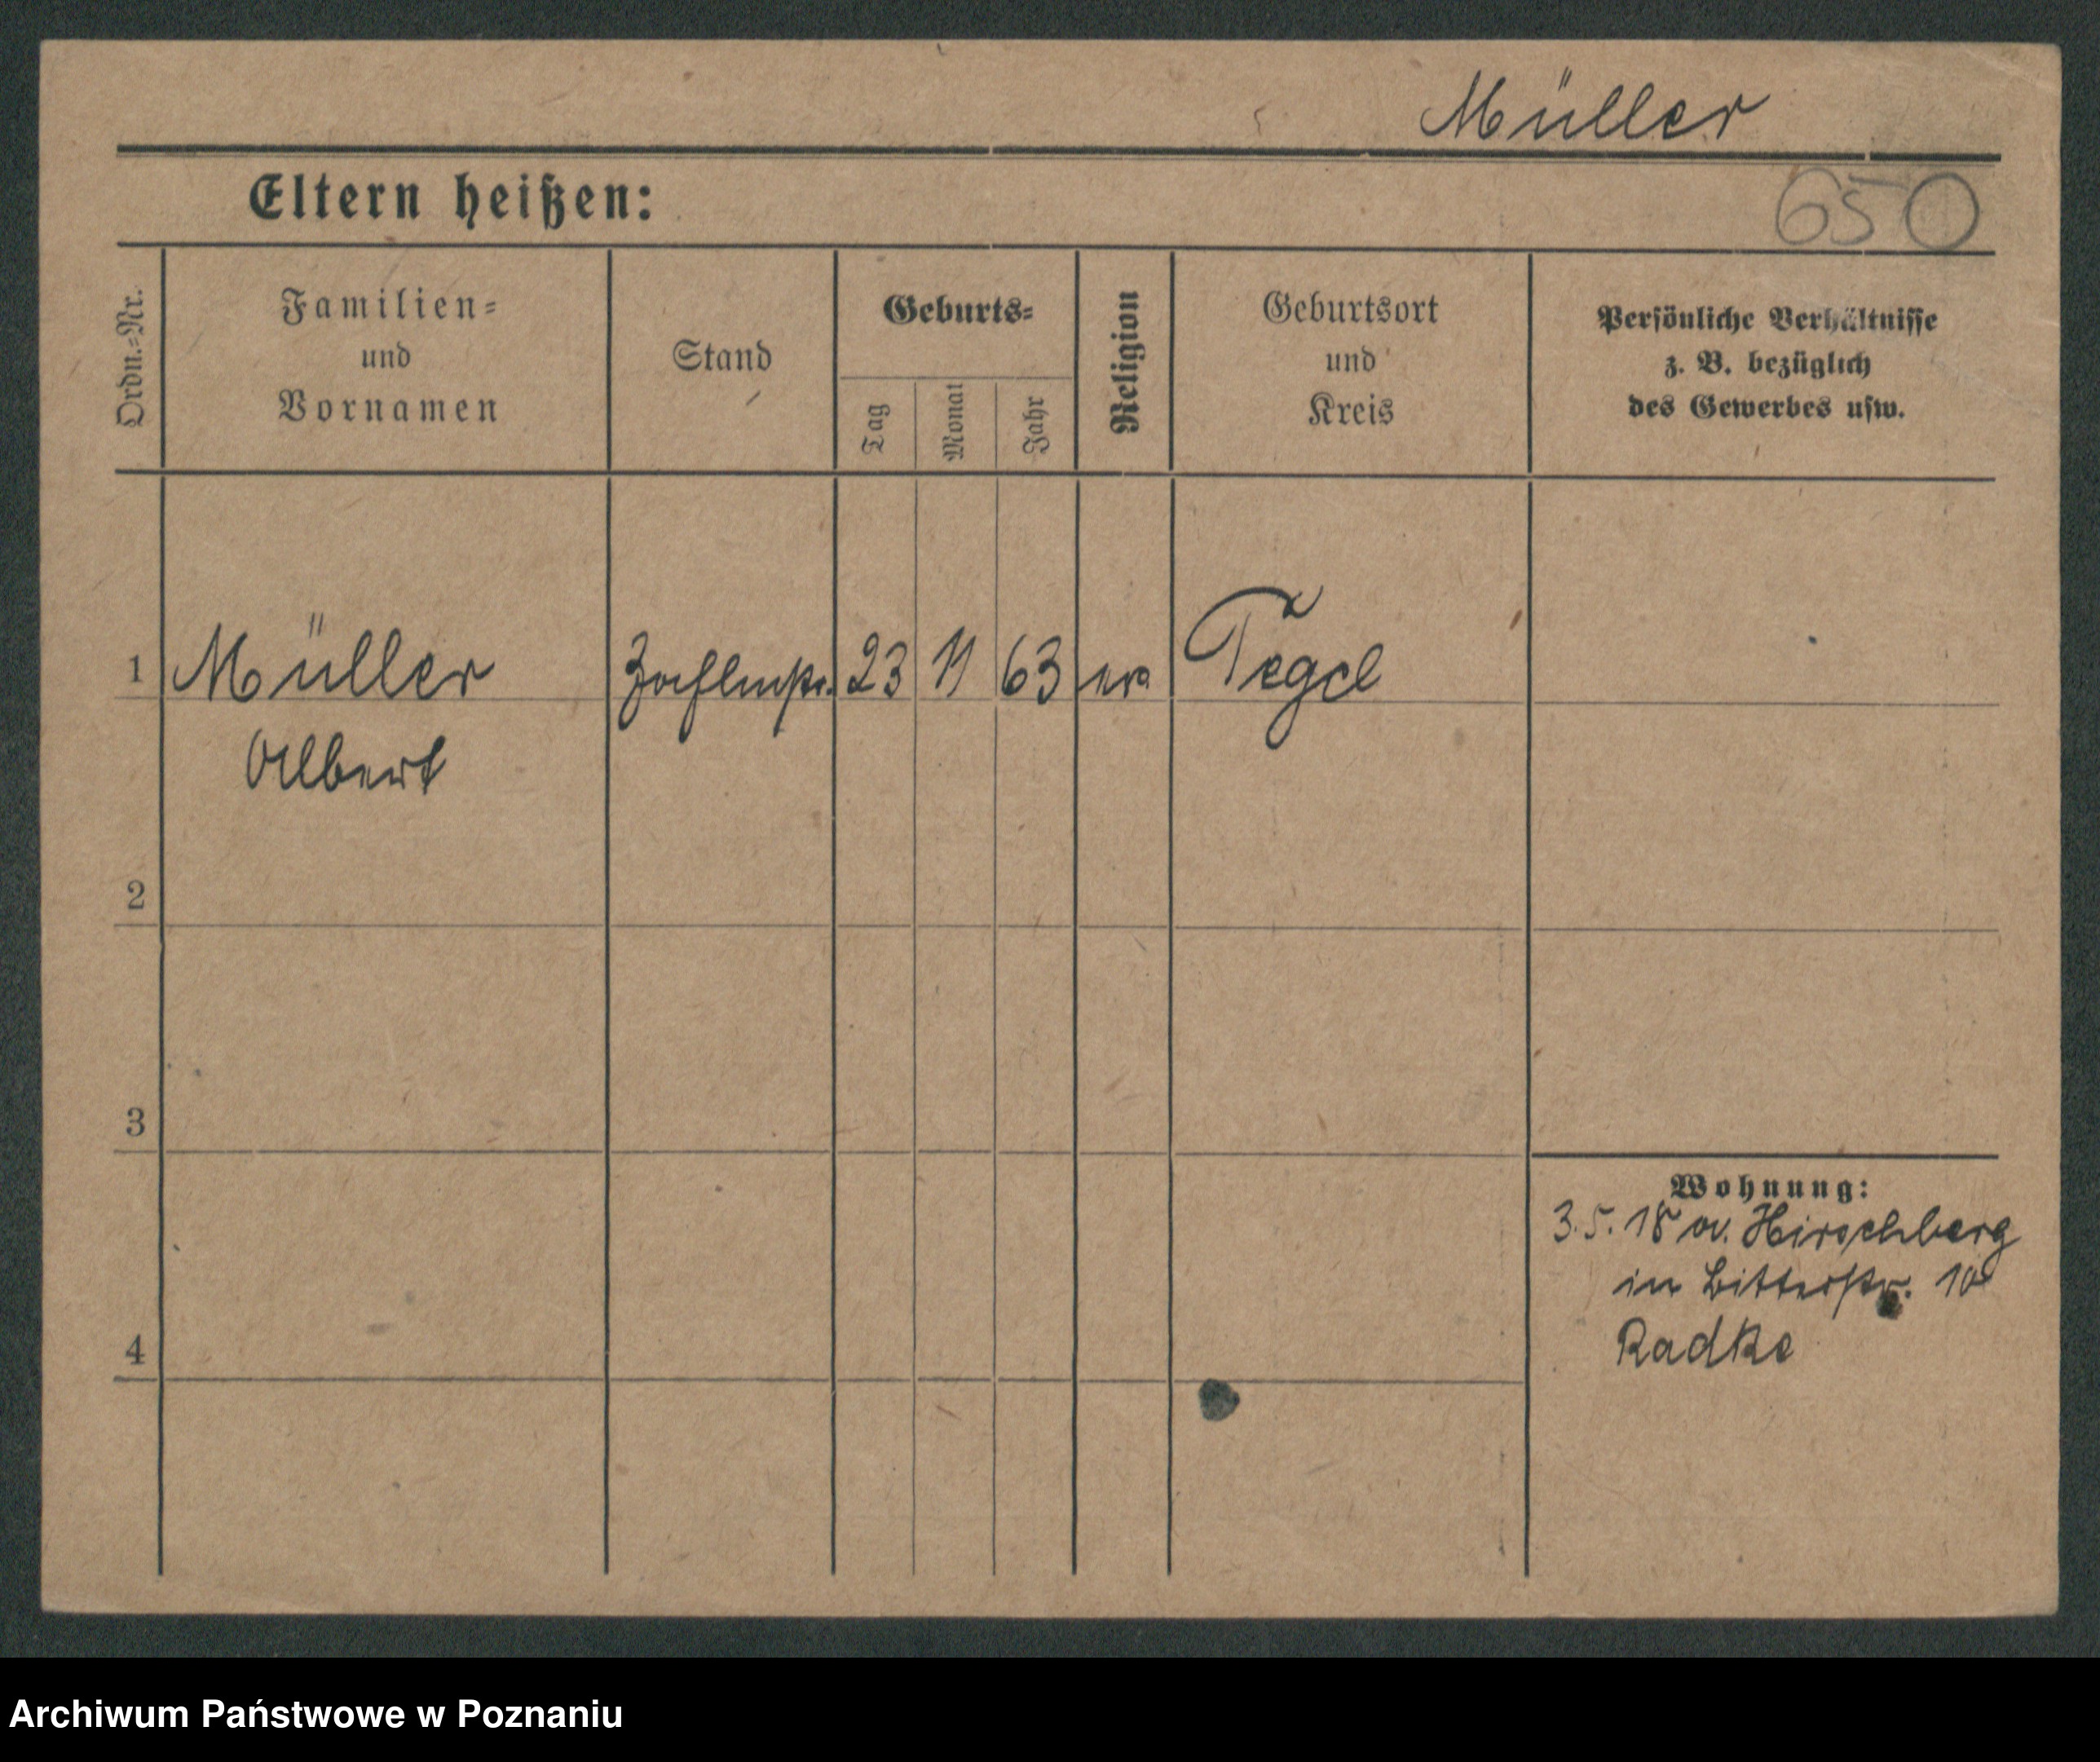 Müller
Eltern heißen:
650
Ordn.-Nr.
Familien-
und
Vornamen
Stand
Geburts-
Tag
Monat
Jahr
Religion
Geburtsort
und
Kreis
Persönliche Verhältnisse
z. B. bezüglich
des Gewerbes usw.
1 Müller Zahlmstr. 23 11 63 ev Tegel
Albert
2
3
4
Wohnung:
3.5.18 av. Hirschberg
in Bitterstr. 10
Radke
Archiwum Państwowe w Poznaniu